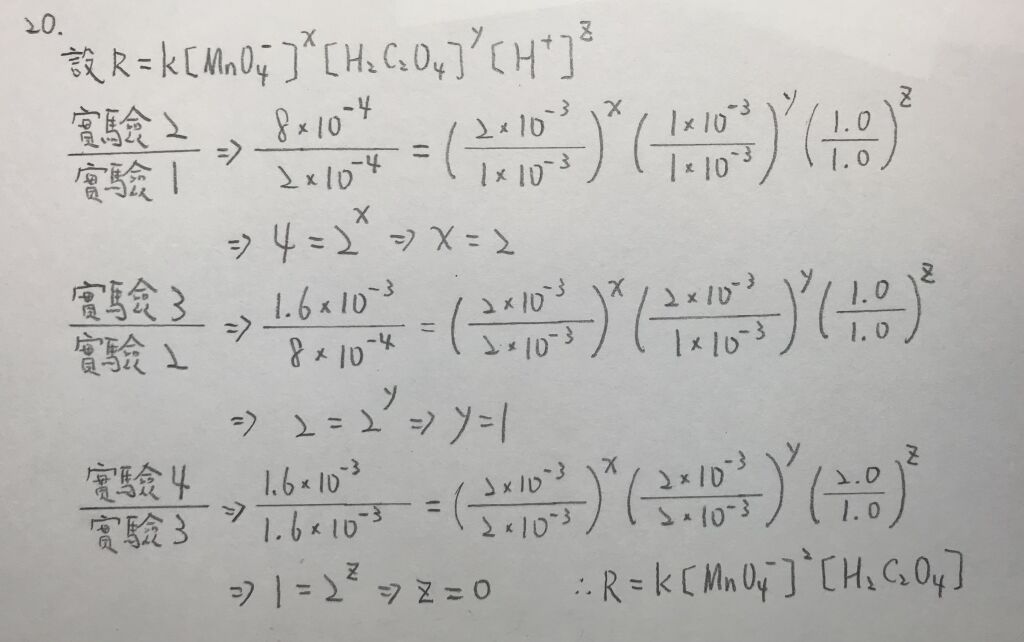 20.
設 R = k[MnO₄⁻]ˣ[H₂C₂O₄]ʸ[H⁺]ᶻ
實驗2/實驗1 ⇒ (8×10⁻⁴)/(2×10⁻⁴) = ((2×10⁻³)/(1×10⁻³))ˣ ((1×10⁻³)/(1×10⁻³))ʸ (1.0/1.0)ᶻ
⇒ 4 = 2ˣ ⇒ x = 2
實驗3/實驗2 ⇒ (1.6×10⁻³)/(8×10⁻⁴) = ((2×10⁻³)/(2×10⁻³))ˣ ((2×10⁻³)/(1×10⁻³))ʸ (1.0/1.0)ᶻ
⇒ 2 = 2ʸ ⇒ y = 1
實驗4/實驗3 ⇒ (1.6×10⁻³)/(1.6×10⁻³) = ((2×10⁻³)/(2×10⁻³))ˣ ((2×10⁻³)/(2×10⁻³))ʸ (2.0/1.0)ᶻ
⇒ 1 = 2ᶻ ⇒ z = 0 ∴ R = k[MnO₄⁻]²[H₂C₂O₄]